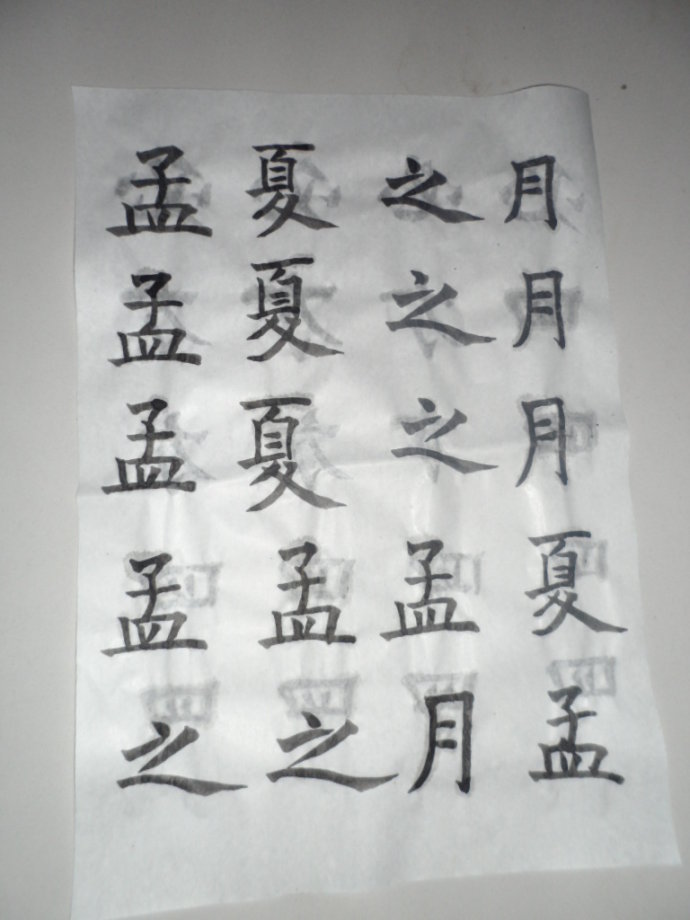 孟夏之月
孟夏之月
孟夏之月
孟孟孟夏
之之月孟